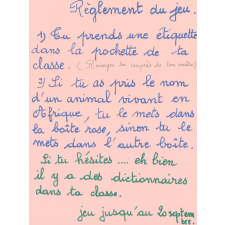 Règlement du jeu.
1) Tu prends une étiquette
dans la pochette de ta
classe. ( auprès de ton maître)
2) Si tu as pris le nom
d'un animal vivant en
Afrique, tu le mets dans
la boîte rose, sinon tu le
mets dans l'autre boîte.
Si tu hésites .... eh bien
il y a des dictionnaires
dans ta classe.
jeu jusqu'au 20 septem
bre.